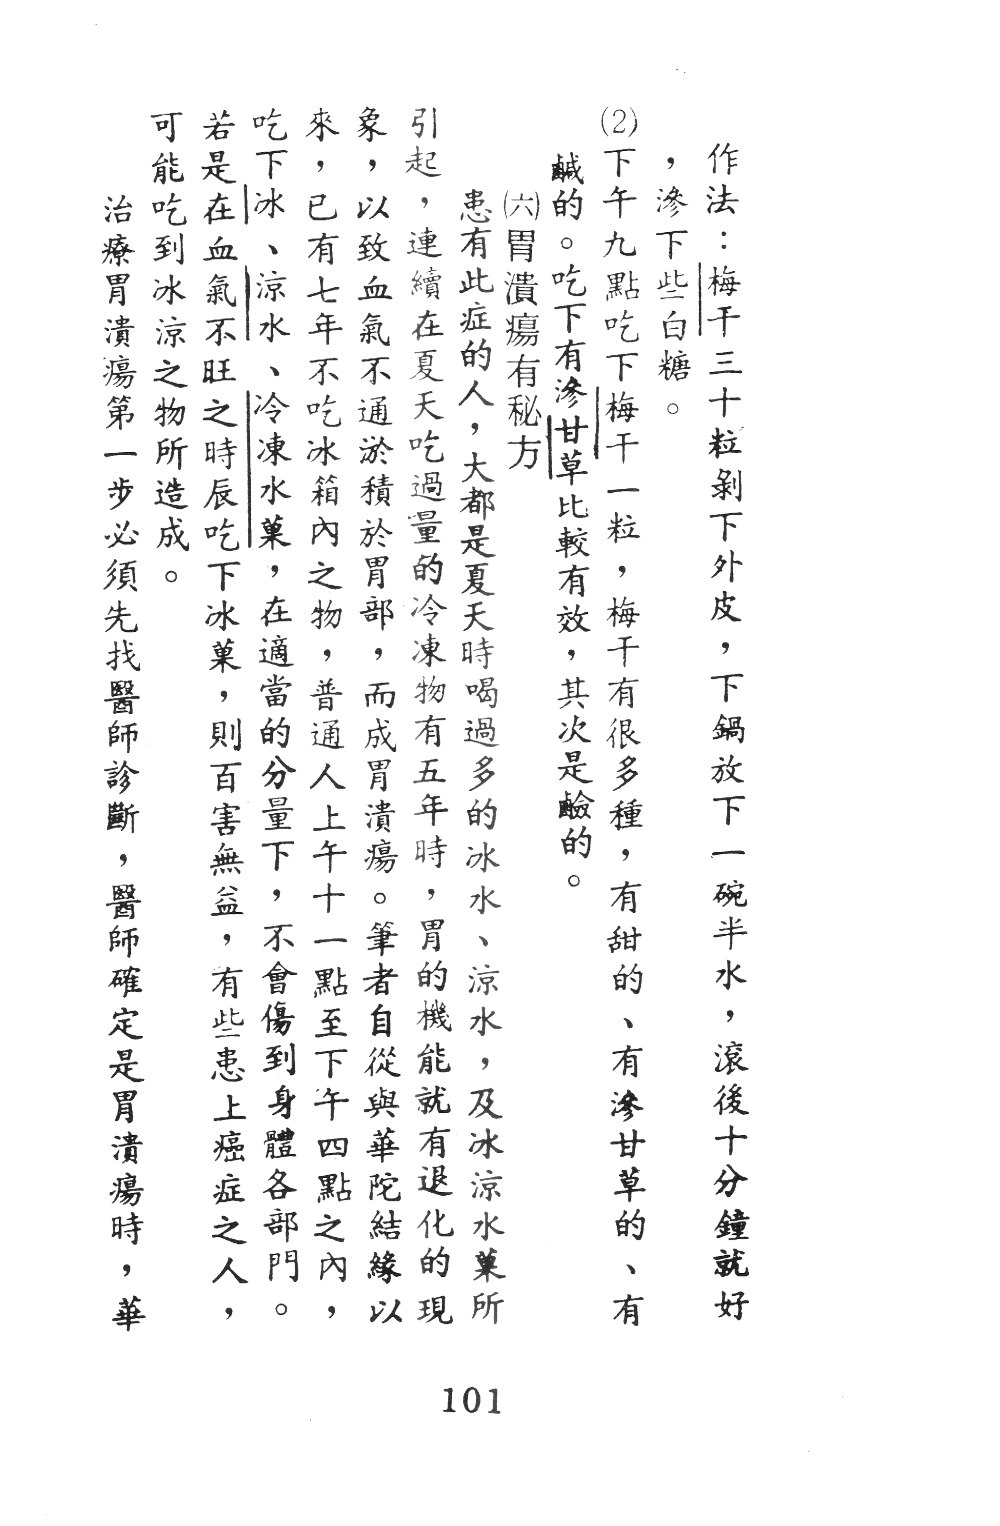 作法：梅干三十粒剝下外皮，下鍋放下一碗半水，滾後十分鐘就好
，滲下些白糖。
⑵下午九點吃下梅干一粒，梅干有很多種，有甜的、有滲甘草的、有
鹹的。吃下有滲甘草比較有效，其次是鹼的。
㈥胃潰瘍有秘方
患有此症的人，大都是夏天時喝過多的冰水、涼水，及冰涼水菓所
引起，連續在夏天吃過量的冷凍物有五年時，胃的機能就有退化的現
象，以致血氣不通淤積於胃部，而成胃潰瘍。筆者自從與華陀結緣以
來，已有七年不吃冰箱內之物，普通人上午十一點至下午四點之內，
吃下冰、涼水、冷凍水菓，在適當的分量下，不會傷到身體各部門。
若是在血氣不旺之時辰吃下冰菓，則百害無益，有些患上癌症之人，
可能吃到冰涼之物所造成。
治療胃潰瘍第一步必須先找醫師診斷，醫師確定是胃潰瘍時，華
101